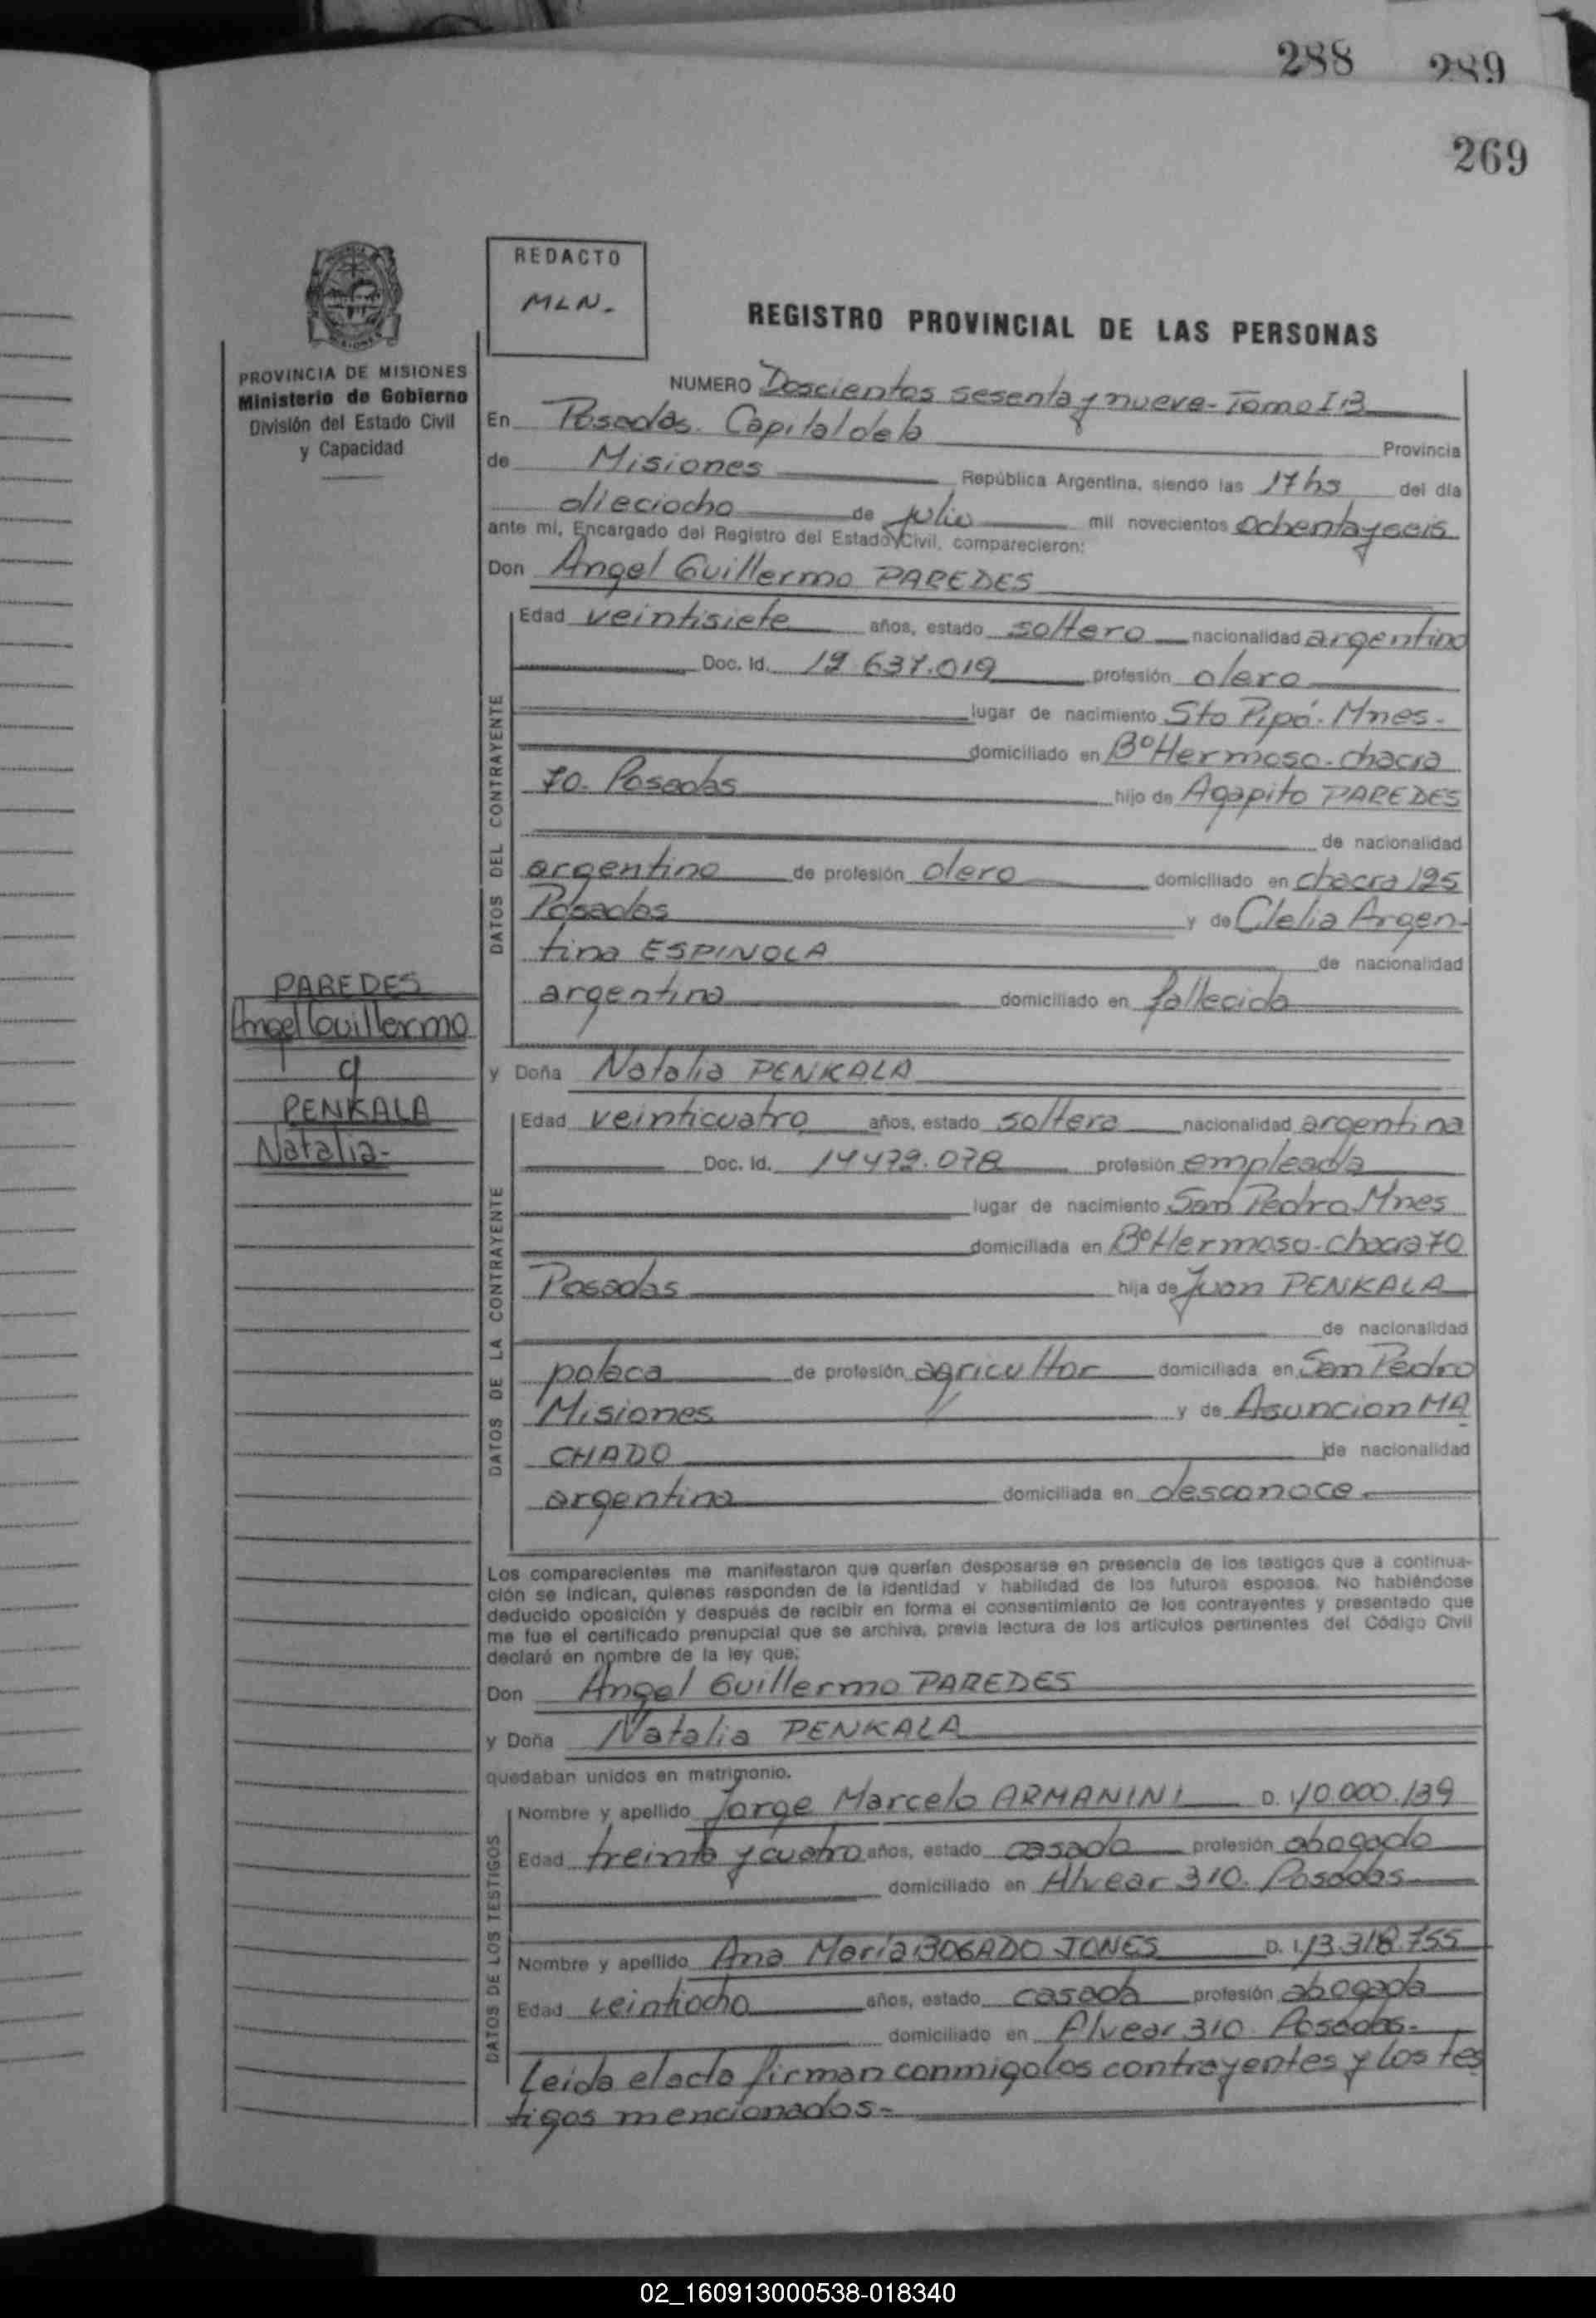 288 289
269
REDACTO
MLN.
REGISTRO PROVINCIAL DE LAS PERSONAS
PROVINCIA DE MISIONES
Ministerio de Gobierno
División del Estado Civil
y Capacidad
NUMERO Doscientos sesenta y nueve - Tomo I B
En Posadas. Capital de la Provincia
de Misiones República Argentina, siendo las 17 hs del día
dieciocho de julio mil novecientos ochenta y seis
ante mí, Encargado del Registro del Estado Civil, comparecieron:
Don Angel Guillermo PAREDES
DATOS DEL CONTRAYENTE
Edad veintisiete años, estado soltero nacionalidad argentino
Doc. Id. 12.637.019 profesión olero
lugar de nacimiento Sto Pipó. Mnes.
domiciliado en Bº Hermoso - chacra
70. Posadas hijo de Agapito PAREDES
de nacionalidad
argentino de profesión olero domiciliado en chacra 195
Posadas y de Clelia Argen-
tina ESPINOLA de nacionalidad
argentina domiciliado en fallecida
PAREDES
Angel Guillermo
y
PENKALA
Natalia-
y Doña Natalia PENKALA
DATOS DE LA CONTRAYENTE
Edad veinticuatro años, estado soltera nacionalidad argentina
Doc. Id. 14479.078 profesión empleada
lugar de nacimiento San Pedro Mnes
domiciliada en Bº Hermoso - chacra 70
Posadas hija de Juan PENKALA
de nacionalidad
polaca de profesión agricultor domiciliada en San Pedro
Misiones y de Asuncion MA
CHADO de nacionalidad
argentina domiciliada en desconoce.
Los comparecientes me manifestaron que querían desposarse en presencia de los testigos que a continua-
ción se indican, quienes responden de la identidad y habilidad de los futuros esposos. No habiéndose
deducido oposición y después de recibir en forma el consentimiento de los contrayentes y presentado que
me fue el certificado prenupcial que se archiva, previa lectura de los artículos pertinentes del Código Civil
declaré en nombre de la ley que:
Don Angel Guillermo PAREDES
y Doña Natalia PENKALA
quedaban unidos en matrimonio.
DATOS DE LOS TESTIGOS
Nombre y apellido Jorge Marcelo ARMANINI D. I. 10.000.139
Edad treinta y cuatro años, estado casado profesión abogado
domiciliado en Alvear 310. Posadas
Nombre y apellido Ana María BOGADO JONES D. I. 13.318.755
Edad veintiocho años, estado casada profesión abogada
domiciliado en Alvear 310. Posadas-
Leida el acta firman conmigo los contrayentes y los tes
tigos mencionados-
02_160913000538-018340